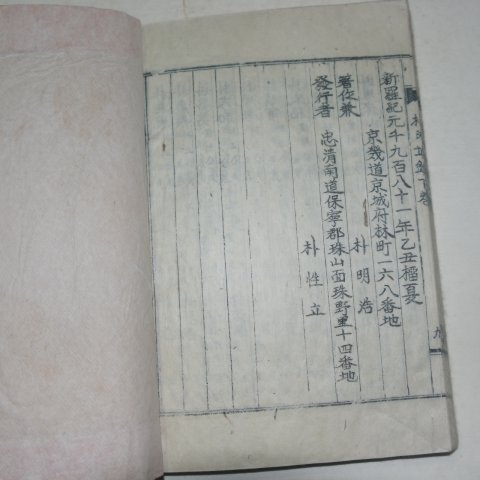 新羅紀元千九百八十一年乙丑榴夏
京幾道京城府林町一六八番地
著作兼
朴明浩
發行者
忠清南道保寧郡珠山面珠野里十四番地
朴性立
下卷
九